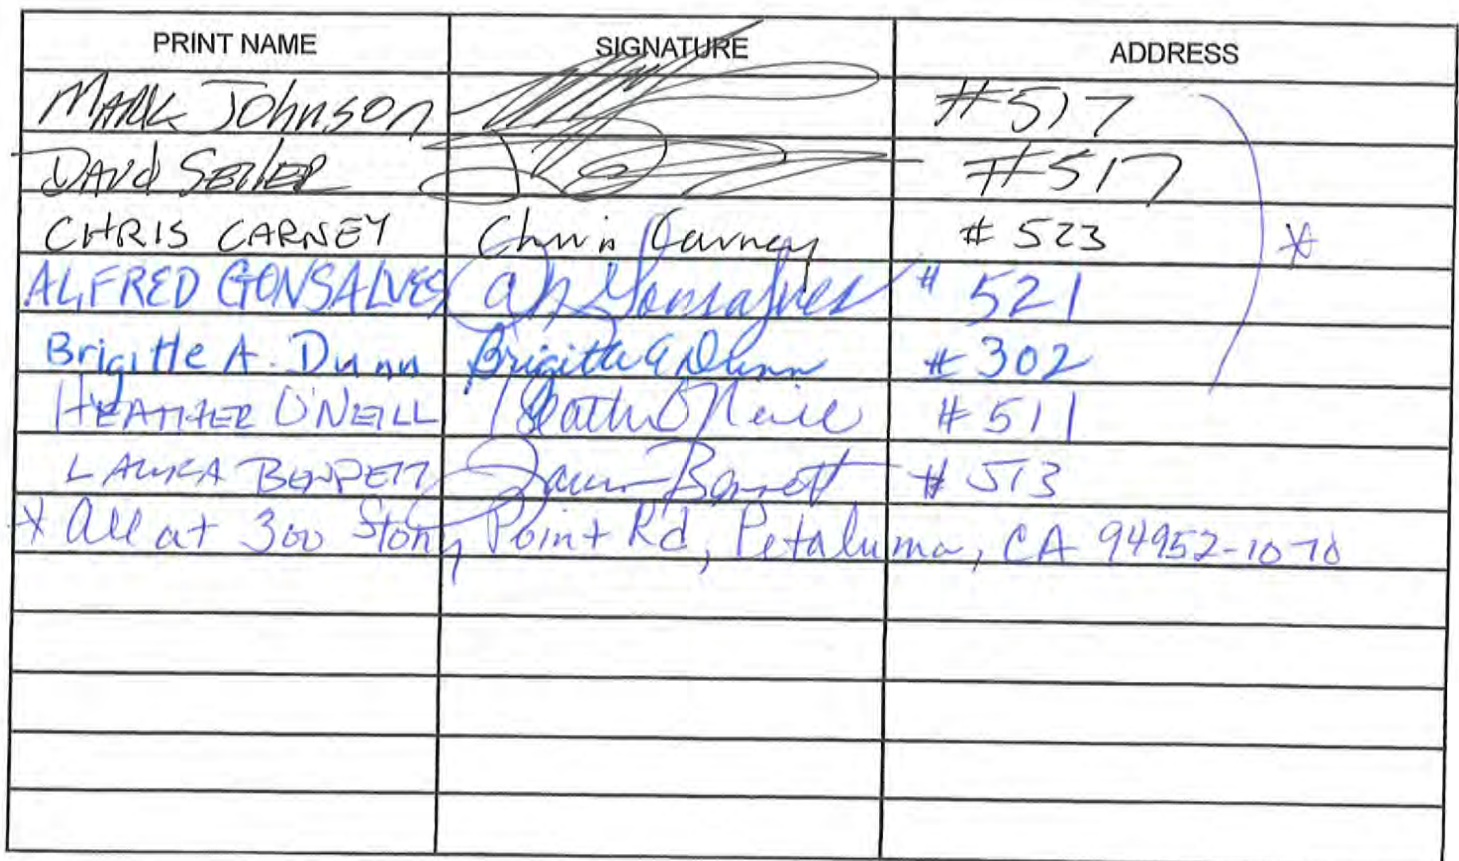 PRINT NAME SIGNATURE ADDRESS
MARK Johnson #517
DAVID SEILER #517
CHRIS CARNEY Chris Carney #523
ALFRED GONSALVES Gonsalves #521
Brigitte A. Dunn Brigitte A Dunn #302
HEATHER O'NEILL Heather O'Neill #511
LAURA BENNETT Laura Bennett #513
*
* All at 300 Stony Point Rd, Petaluma, CA 94952-1070